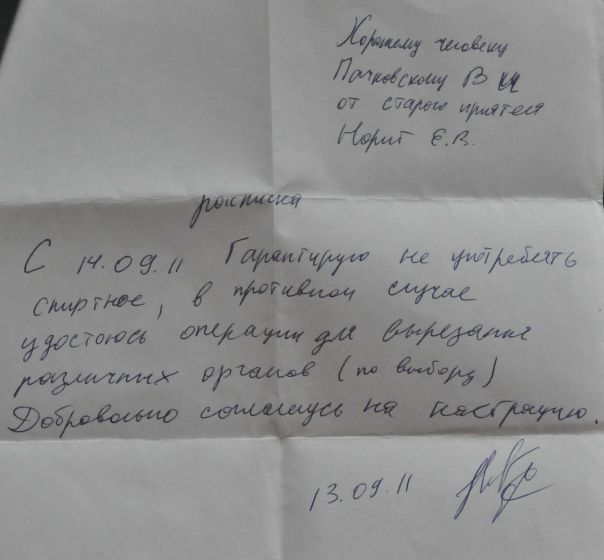 Хорошему человеку
Пачковскому В И
от старого приятеля
Норит Е.В.
расписка
С 14.09.11 Гарантирую не употреблять
спиртное, в противном случае
удостоюсь операции для вырезания
различных органов (по выбору)
Добровольно соглашусь на кастрацию.
13.09.11